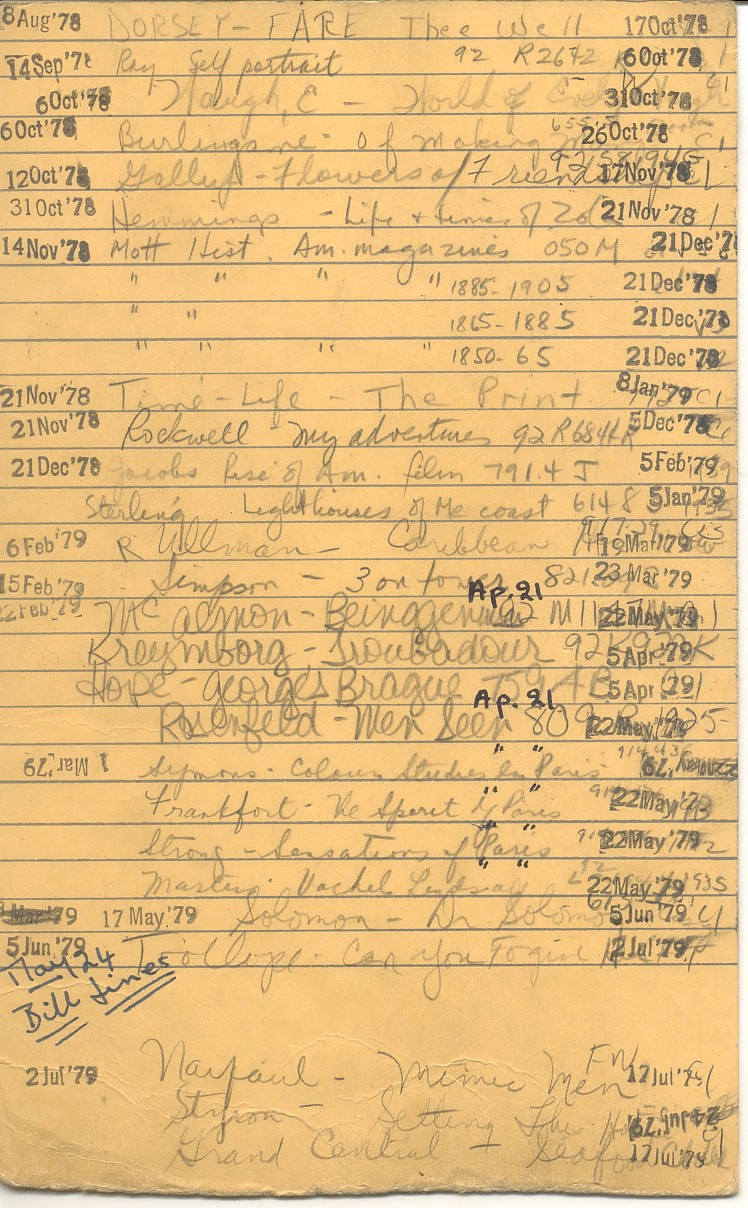 8Aug'78 DORSEY - FARE Thee Well 17Oct'78
14Sep'78 Ray Self portrait 92 R2672 6Oct'78
6Oct'78 Waugh, E - World of 31Oct'78
6Oct'78 Burlingame - Of making 26Oct'78
12Oct'78 Gallup - Flowers of Friendship 17Nov'78
31Oct'78 Hemmings - Life + times of Zola 21Nov'78
14Nov'78 Mott Hist. Am. magazines 050 M 21Dec'78
" " " " 1885-1905 21Dec'78
" " 1865-1885 21Dec'78
" " " " 1850-65 21Dec'78
21Nov'78 Time-Life - The Print 8Jan'79
21Nov'78 Rockwell My adventures 92 R684R 5Dec'78
21Dec'78 Jacobs Rise of Am. film 791.4 J 5Feb'79
Sterling Lighthouses of Me coast 5Jan'79
6Feb'79 R Ullman - Caribbean 19Mar'79
15Feb'79 Simpson - 3 on tower 821. 23Mar'79
22Feb'79 McAlmon - Being Ap.21 92 22May'79
Kreymborg - Troubadour 92 5Apr'79
Hope - Georges Braque 759.4B 5Apr'79
Rosenfeld - Men Seen Ap.21 809 22May'79
1Mar'79 Symons - Colour Studies in Paris " " 22May'79
Frankfort - The Spirit of Paris " " 22May'79
Strong - Sensations of Paris " " 22May'79
Masters. Vachel Lindsay " " 22May'79
Mar'79 17May'79 Solomon - Dr Solomon 5Jun'79
5Jun'79 Trollope. Can You Forgive 2Jul'79
May 24
Bill Lines
2Jul'79 Naipaul - Mimic Men 17Jul'79
Styron - Setting 24Jul'79
Grand Central - Seafood 17Jul'79